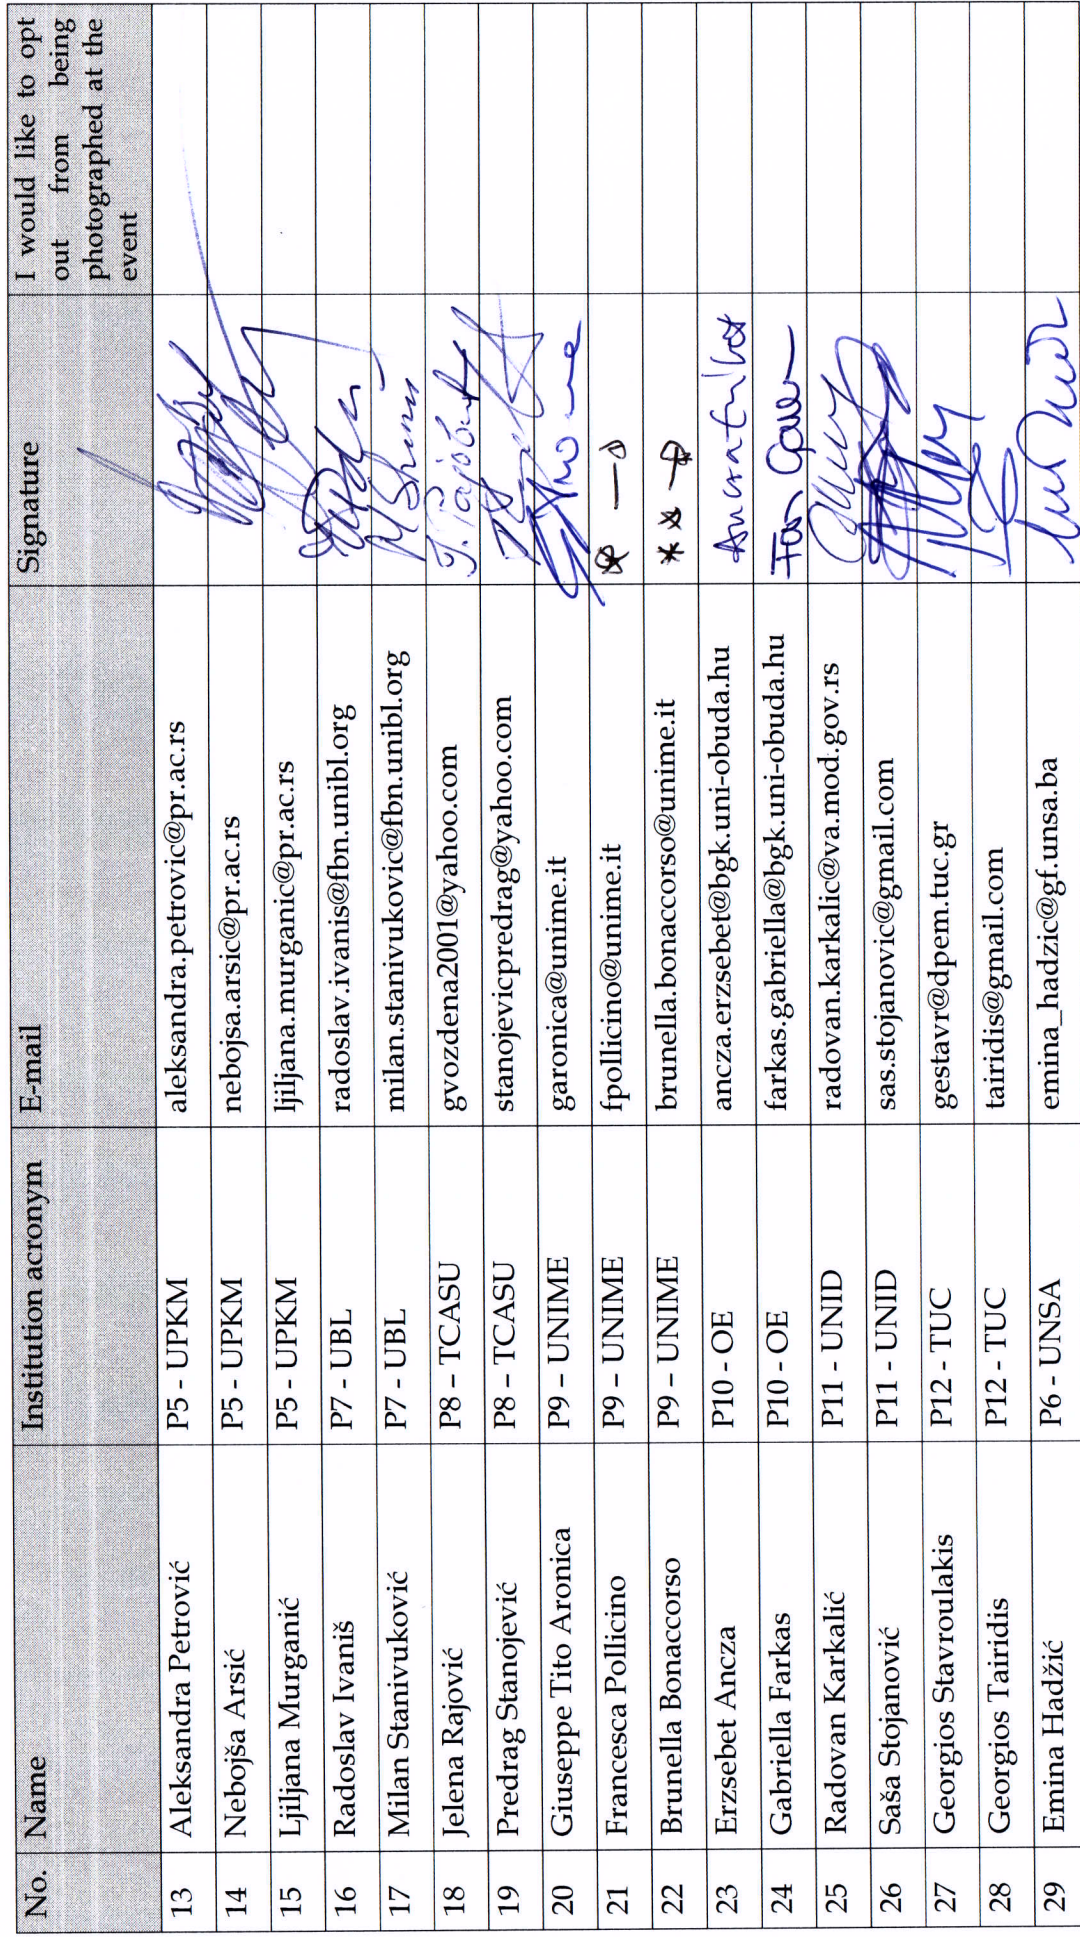 No. Name Institution acronym E-mail Signature I would like to opt
out from being
photographed at the
event
13 Aleksandra Petrović P5 - UPKM aleksandra.petrovic@pr.ac.rs
14 Nebojša Arsić P5 - UPKM nebojsa.arsic@pr.ac.rs
15 Ljiljana Murganić P5 - UPKM ljiljana.murganic@pr.ac.rs
16 Radoslav Ivaniš P7 - UBL radoslav.ivanis@fbn.unibl.org
17 Milan Stanivuković P7 - UBL milan.stanivukovic@fbn.unibl.org
18 Jelena Rajović P8 – TCASU gvozdena2001@yahoo.com
19 Predrag Stanojević P8 – TCASU stanojevicpredrag@yahoo.com
20 Giuseppe Tito Aronica P9 – UNIME garonica@unime.it
21 Francesca Pollicino P9 – UNIME fpollicino@unime.it
22 Brunella Bonaccorso P9 – UNIME brunella.bonaccorso@unime.it
23 Erzsebet Ancza P10 - OE ancza.erzsebet@bgk.uni-obuda.hu
24 Gabriella Farkas P10 - OE farkas.gabriella@bgk.uni-obuda.hu
25 Radovan Karkalić P11 - UNID radovan.karkalic@va.mod.gov.rs
26 Saša Stojanović P11 - UNID sas.stojanovic@gmail.com
27 Georgios Stavroulakis P12 - TUC gestavr@dpem.tuc.gr
28 Georgios Tairidis P12 - TUC tairidis@gmail.com
29 Emina Hadžić P6 - UNSA emina_hadzic@gf.unsa.ba